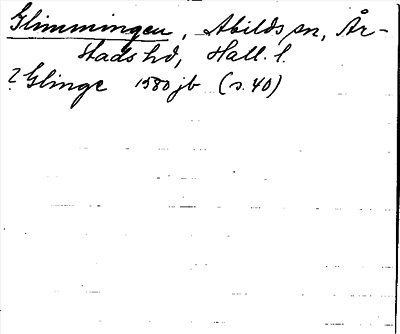 Glimmingen, Abilds sn, År-
stads hd, Hall. l.
? Glinge 1580 jb (s. 40)